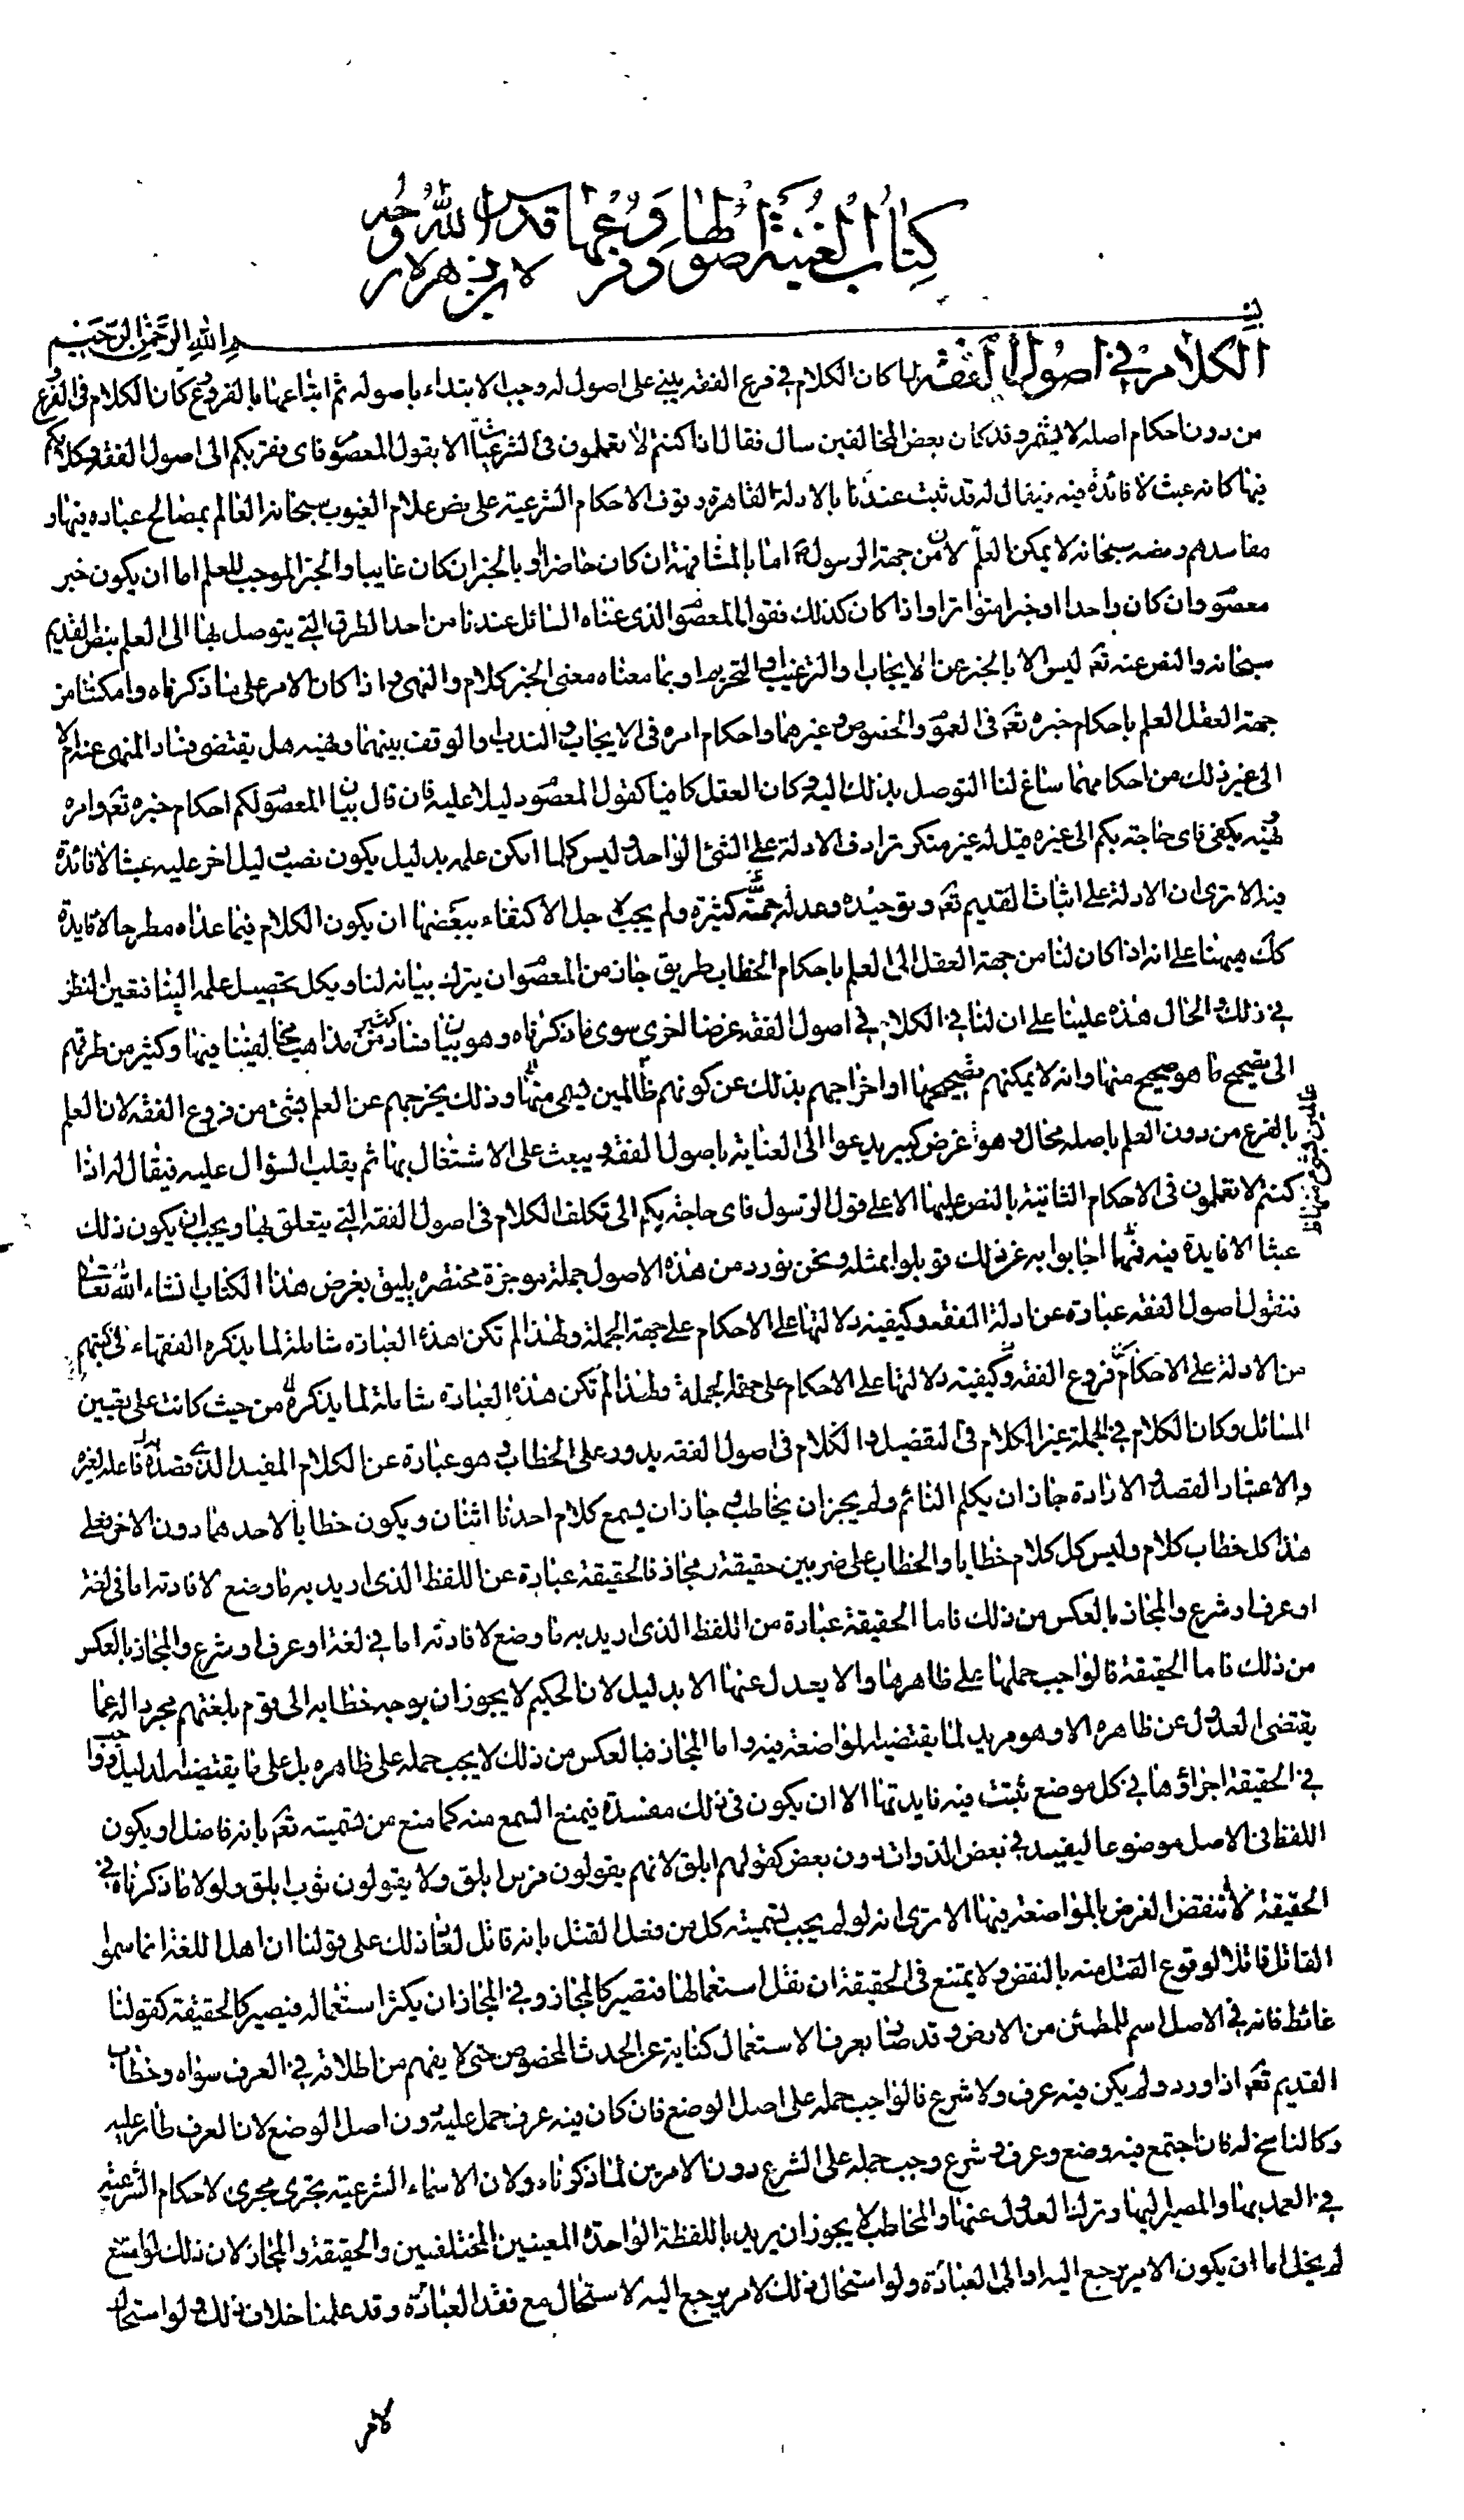 كتاب الغنية اصولها وفروعها قدس الله روحه
لابن زهرة
بسم الله الرحمن الرحيم
الكلام في اصول الفقه لما كان الكلام في فرع الفقه يبنى على اصول له وجب الابتداء باصوله ثم اتباعها بالفروع كان الكلام في الفرع
من دون احكام اصله لا يثمر وقد كان بعض المخالفين سال فقال اذا كنتم لا تعملون في الشرعيات الا بقول المعصوم فاى فقر بكم الى اصول الفقه وكلامكم
فيها كانه عبث لا فائدة فيه فيقال له قد ثبت عندنا بالادلة القاهرة وقوف الاحكام الشرعية على نص علام الغيوب سبحانه العالم بمصالح عباده فيها و
مفاسدهم ونصه سبحانه لا يمكن العلم الا من جهة الرسول اما بالمشافهة ان كان حاضرا او بالخبر ان كان غايبا والخبر الموجب للعلم اما ان يكون خبر
معصوم وان كان واحدا او خبرا متواترا واذا كان كذلك فقول المعصوم الذى عناه السائل عندنا من احد الطرق التي يتوصل بها الى العلم بنص القديم
سبحانه والنص عنه تعم ليس الا بالخبر عن الايجاب والترغيب والتحريم او بما معناه معنى الخبر كلام والنهى واذا كان الامر على ما ذكرناه وامكننا من
جهة العقل العلم باحكام خبره تعم في العموم والخصوص وغيرهما واحكام امره في الايجاب والندب والوقف بينهما ونهيه هل يقتضى فساد المنهى عنه ام لا
الى غير ذلك من احكامهما ساغ لنا التوصل بذلك اليه وكان العقل كافيا كقول المعصوم دليلا عليه فان قال بيان المعصوم لكم احكام خبره تعم وامره
ونهيه يكفى فاى حاجة بكم الى غيره قيل له غير منكر ترادف الادلة على الشئ الواحد وليس كلما امكن علمه بدليل يكون نصب دليل اخر عليه عبثا لا فائدة
فيه الا ترى ان الادلة على اثبات القديم تعم وتوحيده وعدله جمة كثيرة ولم يجب لاجل الاكتفاء ببعضها ان يكون الكلام فيما عداه مطرحا لا فايدة
كك هيهنا على انه اذا كان لنا من جهة العقل الى العلم باحكام الخطاب طريق جاز من المعصوم ان يترك بيانه لنا ويكل تحصيل علمه الينا فتعين النظر
في ذلك والحال هذه علينا على ان لنا في الكلام في اصول الفقه غرضا اخرى سوى ما ذكرناه وهو بيان فساد كثير من مذاهب مخالفينا فيها وكثير من طرقهم
الى تصحيح ما هو صحيح منها وانه لا يمكنهم تصحيحها او اخراجهم بذلك عن كونهم ظالمين بشئ منها وذلك يخرجهم عن العلم بشئ من فروع الفقه لان العلم
بالفرع من دون العلم باصله محال وهو غرض كبير يدعوا الى العناية باصول الفقه ويبعث على الاشتغال بها ثم يقلب السؤال عليه فيقال له اذا
كنتم لا تعملون في الاحكام الثابتة بالنص عليها الا على قول الرسول فاى حاجة بكم الى تكلف الكلام في اصول الفقه التي يتعلق بها ويجب ان يكون ذلك
عبثا لا فايدة فيه فمهما اجابوا به عن ذلك قوبلوا بمثله ونحن نورد من هذه الاصول جملة موجزة مختصره يليق بغرض هذا الكتاب انشاء الله تعالى
فنقول اصول الفقه عبادة عن ادلة الفقه وكيفية دلالتها على الاحكام على جهة الجملة ولهذا لم تكن هذه العبادة شاملة لما يذكره الفقهاء في كتبهم
من الادلة على الاحكام فروع الفقه وكيفية دلالتها على الاحكام على جهة الجملة ولهذا لم تكن هذه العبادة شاملة لما يذكره من حيث كانت على تعيين
المسائل وكان الكلام في الجملة غير الكلام في التفضيل والكلام في اصول الفقه يدور على الخطاب وهو عبارة عن الكلام المفيد الذى قصد به فاعله لغيره
والاعتبار القصد والارادة جاز ان يكلم النائم ولم يجز ان يخاطب وجاز ان يسمع كلام احدنا اثنان ويكون خطابا لاحدهما دون الاخر فعلى
هذا كل خطاب كلام وليس كل كلام خطابا والخطاب على ضربين حقيقة ومجاز فالحقيقة عبارة عن اللفظ الذى اريد به ما وضع لافادته اما في لغة
او عرف او شرع والمجاز بالعكس من ذلك فاما الحقيقة عبارة من اللفظ الذى اريد به ما وضع لافادته اما في لغة او عرف او شرع والمجاز بالعكس
من ذلك فاما الحقيقة فالواجب حملها على ظاهرها والا يعدل عنها الا بدليل لان الحكيم لا يجوز ان يوجه خطابه الى قوم بلغتهم مجردا عما
يقتضى العدول عن ظاهره الا وهو مريد لما يقتضيه المواضعة فيه واما المجاز فبالعكس من ذلك لا يجب حمله على ظاهره بل على ما يقتضيه الدليل والواجب
في الحقيقة اجراؤها في كل موضع ثبتت فيه فايدتها الا ان يكون في ذلك مفسدة فيمنع السمع منه كما منع من تسميته تعم بانه فاضل او يكون
اللفظ في الاصل موضوعا ليفيد في بعض الذوات دون بعض كقولهم ابلق لانهم يقولون فرس ابلق ولا يقولون ثوب ابلق ولولا ما ذكرناه في
الحقيقة لانتقض الغرض بالمواضعة فيها الا ترى انه لو لم يجب تسمية كل من فعل القتل بانه قاتل لعاد ذلك على قولنا ان اهل اللغة انما سموا
القاتل قاتلا لوقوع القتل منه بالنقض ولا يمتنع في الحقيقة ان نقل استعمالها فتصير كالمجاز وفي المجاز ان يكثر استعماله فيصير كالحقيقة كقولنا
غائط فانه في الاصل اسم للمطمئن من الارض وقد صار بعرف الاستعمال كناية عن الحدث المخصوص حتى لا يفهم من اطلاقه في العرف سواه وخطاب
القديم تعم اذا ورد ولم يكن فيه عرف ولا شرع فالواجب حمله على اصل الوضع فان كان فيه عرف حمل عليه دون اصل الوضع لان العرف طار عليه
وكالناسخ له فان اجتمع فيه وضع وعرف وشرع وجب حمله على الشرع دون الامرين لما ذكرناه ولان الاسماء الشرعية تجرى مجرى الاحكام الشرعية
في العمل بها والمصير اليها وترك العدول عنها والمخاطب لا يجوز ان يريد باللفظة الواحدة المعنيين المختلفين والحقيقة والمجاز لان ذلك لو امتنع
لم يخل اما ان يكون الامر يرجع اليه او الى العبادة ولو استحال ذلك لامر يرجع اليه لاستحال مع فقد العبادة وقد علمنا خلاف ذلك ولو استحال
لامر